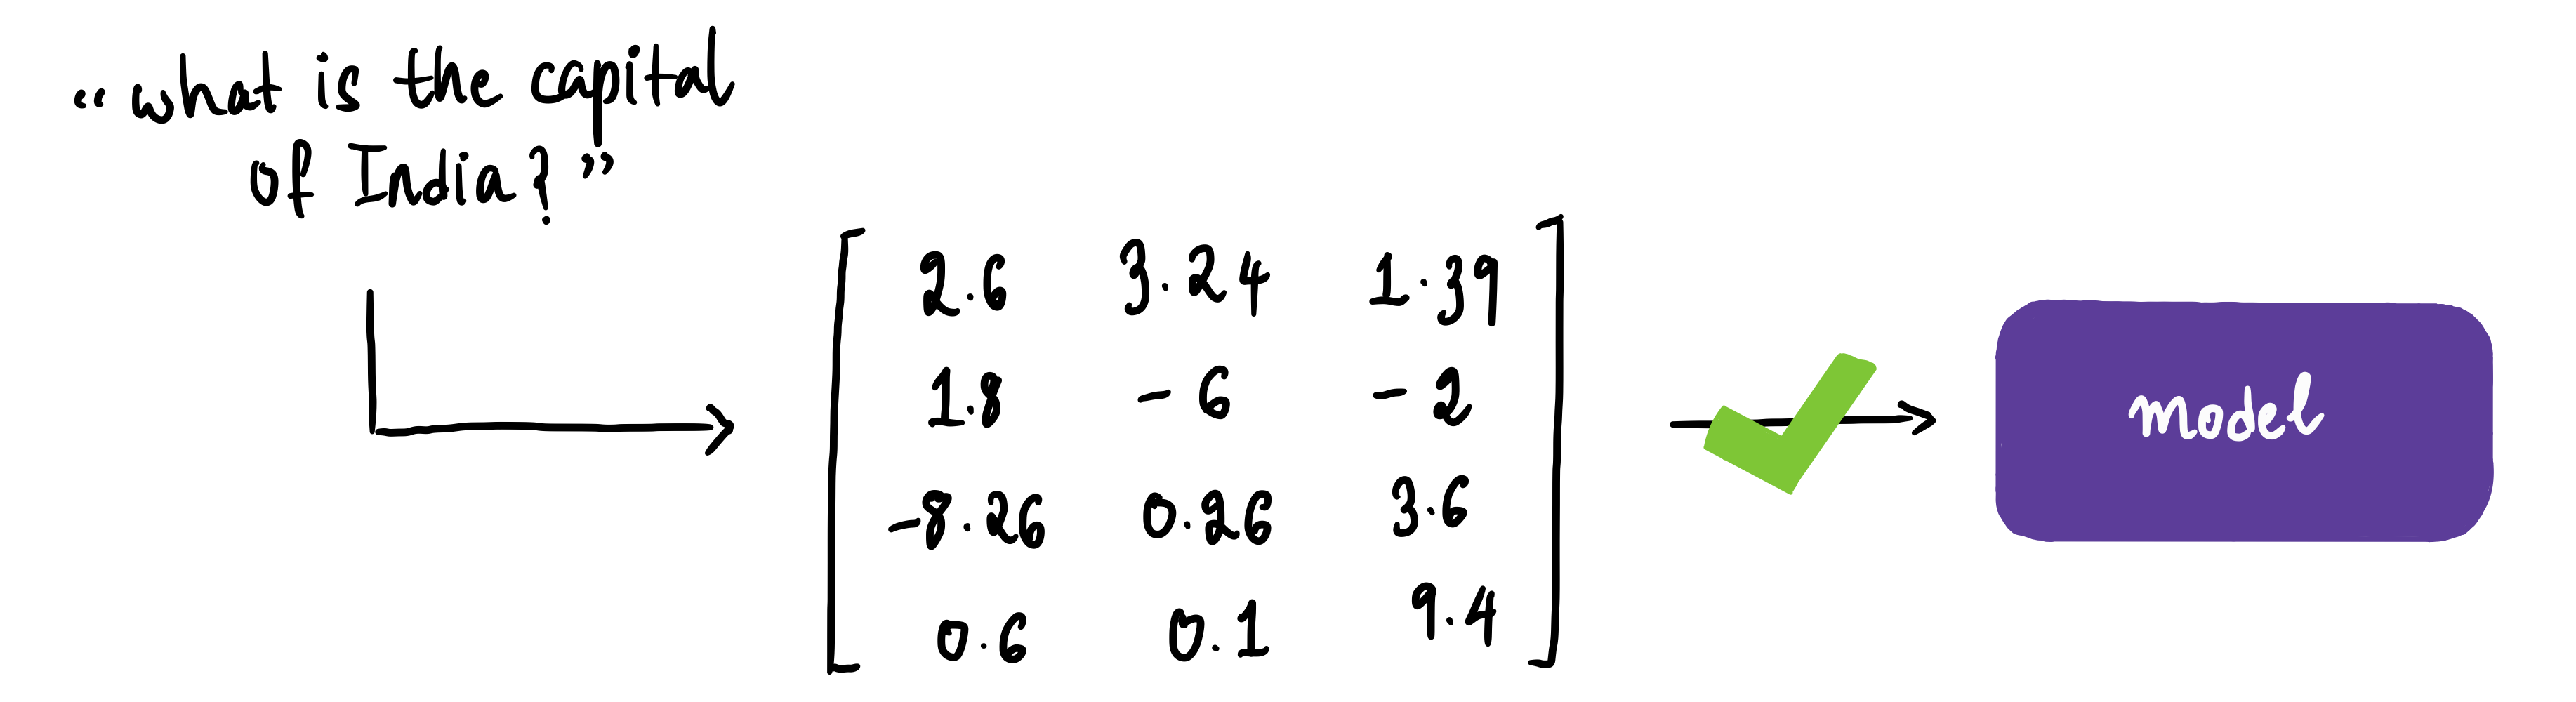 “what is the capital
of India?”
2.6 3.24 1.39
1.8 -6 -2
-8.26 0.26 3.6
0.6 0.1 9.4
model